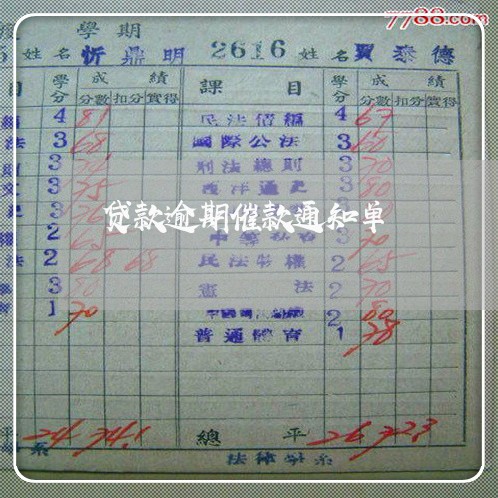 7788.com
學期
姓名 忻鼎明 2616 姓名 賈泰德
目 學分 成績 課目 學分 成績
分數 扣分 實得 分數 扣分 實得
4 81 民法債編 4 67
法 3 68 國際公法 3 60
3 刑法總則 3 70
3 75 西洋通史 3 80
3
貸款逾期催款通知单
2 3 70
法 2 68 68 民法物權 2 65
3 80 憲法 2 70
1 70 2 80
普通體育 1 78
平 24 74.1 總平 26 72.3
系 法律學系